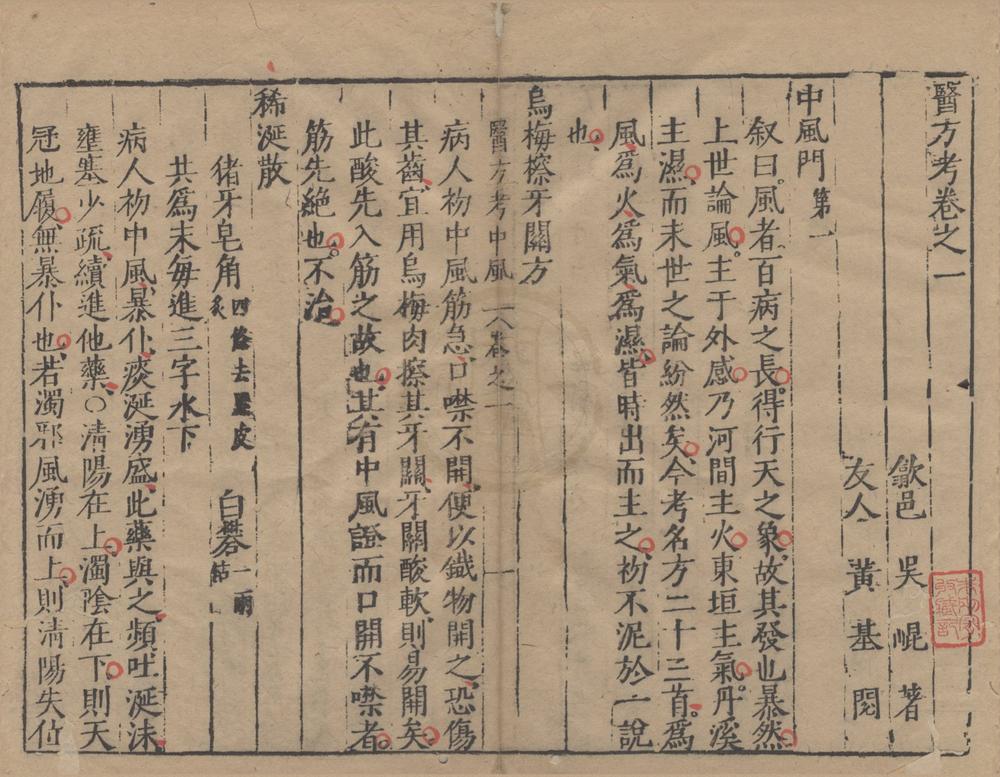 醫方考卷之一
歙邑 吳崐 著
友人 黃基 閱
中風門第一
叙曰風者百病之長得行天之象故其發也暴然
上世論風主于外感乃河間主火東垣主氣丹溪
主濕而末世之論紛然矣今考名方二十二首爲
風爲火爲氣爲濕皆時出而主之初不泥於一說
也
烏梅擦牙關方
醫方考中風 卷之一 一
病人初中風筋急口噤不開便以鐵物開之恐傷
其齒宜用烏梅肉擦其牙關牙關酸軟則易開矣
此酸先入筋之故也其有中風證而口開不噤者
筋先絶也不治
稀涎散
猪牙皂角四條去黑皮炙 白礬一兩枯
共爲末每進三字水下
病人初中風暴仆痰涎湧盛此藥與之頻吐涎沫
壅塞少疏續進他藥○清陽在上濁陰在下則天
冠地履無暴仆也若濁邪風湧而上則清陽失位